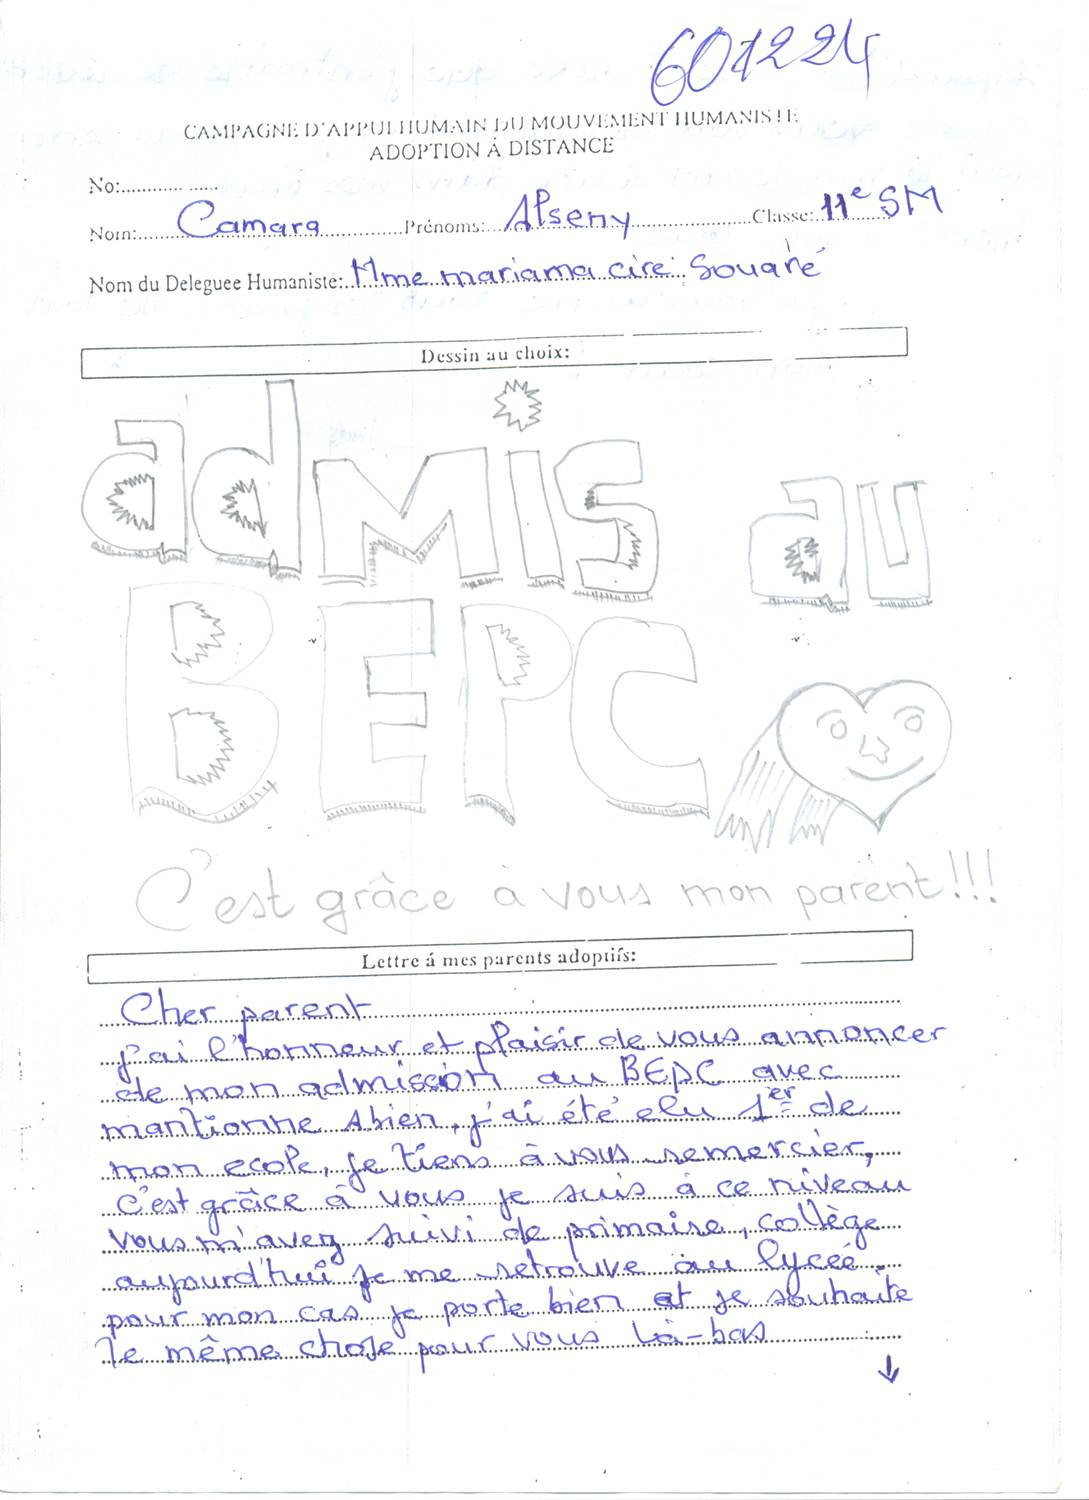 601224
CAMPAGNE D'APPUI HUMAIN DU MOUVEMENT HUMANISTE
ADOPTION À DISTANCE
No:
Nom: Camara Prénoms: Alseny Classe: 11e SM
Nom du Deleguee Humaniste: Mme mariama cire Souaré
Dessin au choix:
adMis au
BEPC
C'est grâce à vous mon parent!!!
Lettre á mes parents adoptifs:
Cher parent
j'ai l'honneur et plaisir de vous annoncer
de mon admission au BEPC avec
mantionne Abien, j'ai été elu 1er de
mon ecole, je tiens à vous remercier,
c'est grâce à vous je suis à ce niveau
vous m'avez suivi de primaire, collège
aujourd'hui je me retrouve au lyceé.
pour mon cas je porte bien et je souhaite
le même chose pour vous là-bas